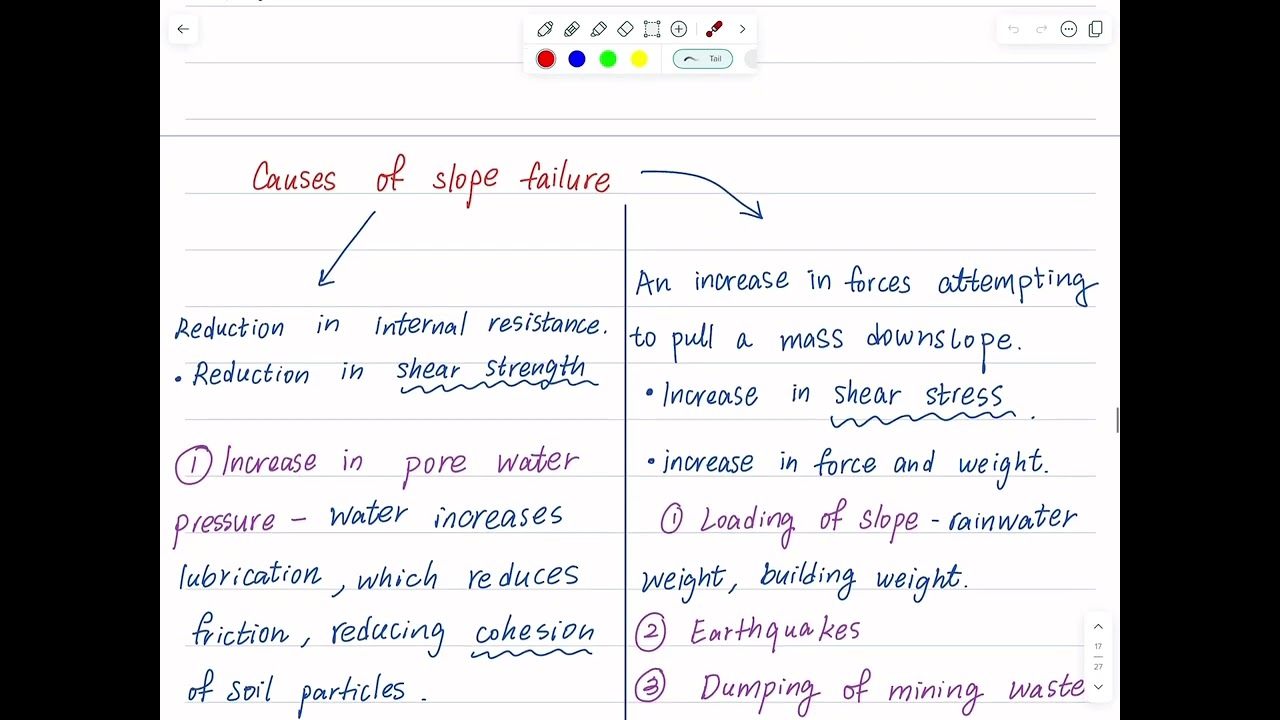 Tail
Causes of slope failure
Reduction in internal resistance.
• Reduction in shear strength
① Increase in pore water
pressure – water increases
lubrication, which reduces
friction, reducing cohesion
of soil particles.
An increase in forces attempting
to pull a mass downslope.
• Increase in shear stress.
• increase in force and weight.
① Loading of slope - rainwater
weight, building weight.
② Earthquakes
③ Dumping of mining waste
17
27